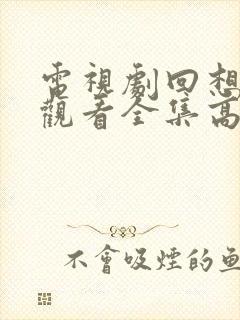 電視劇回想
觀看全集高
不會吸煙的魚